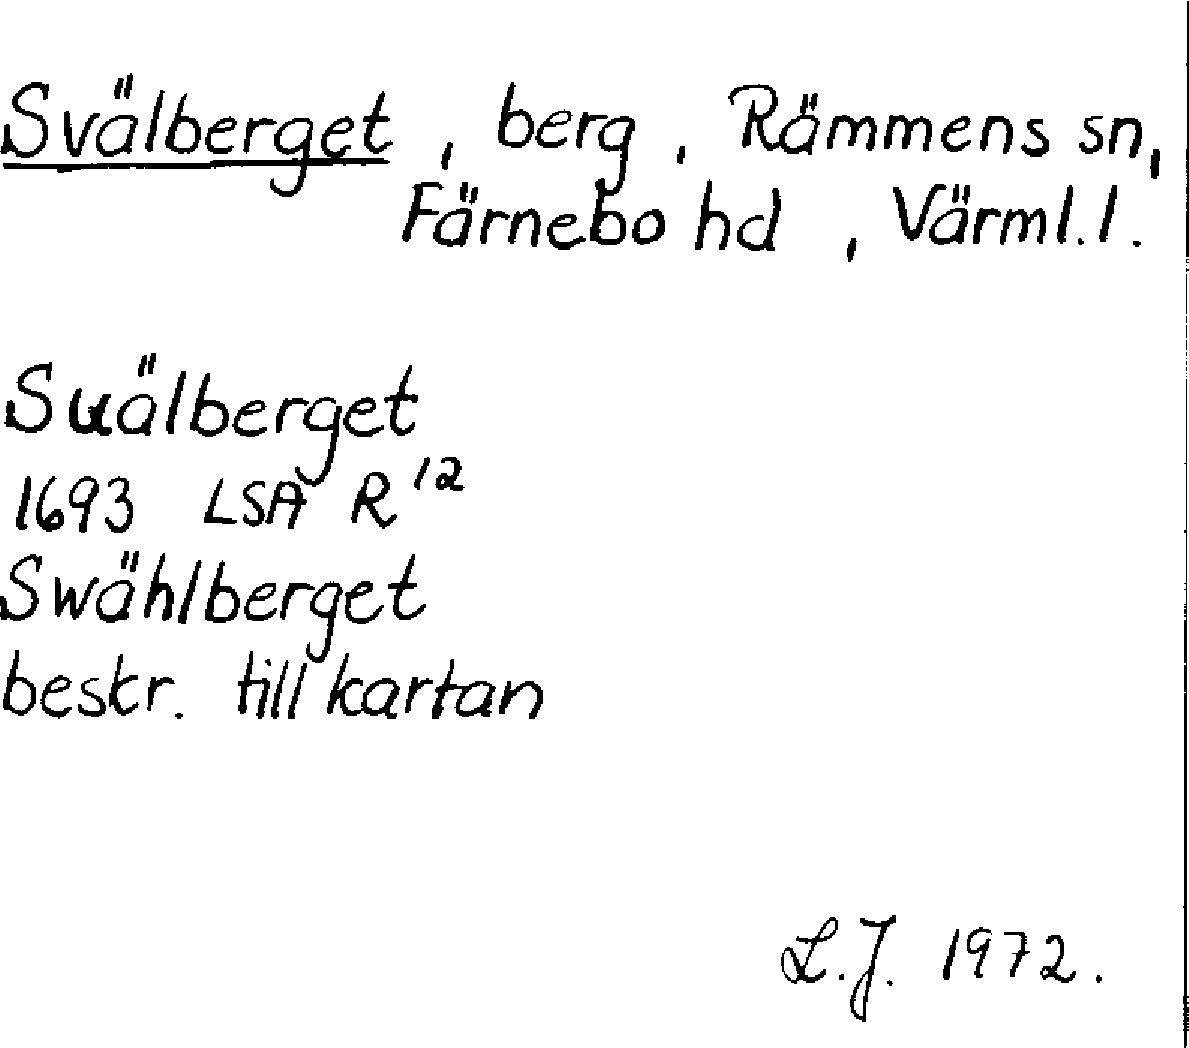 Svälberget, berg, Rämmens sn,
Färnebo hd, Värml.l.
Suälberget
1693 LSA R 12
Swählberget
beskr. till kartan
L.J. 1972.